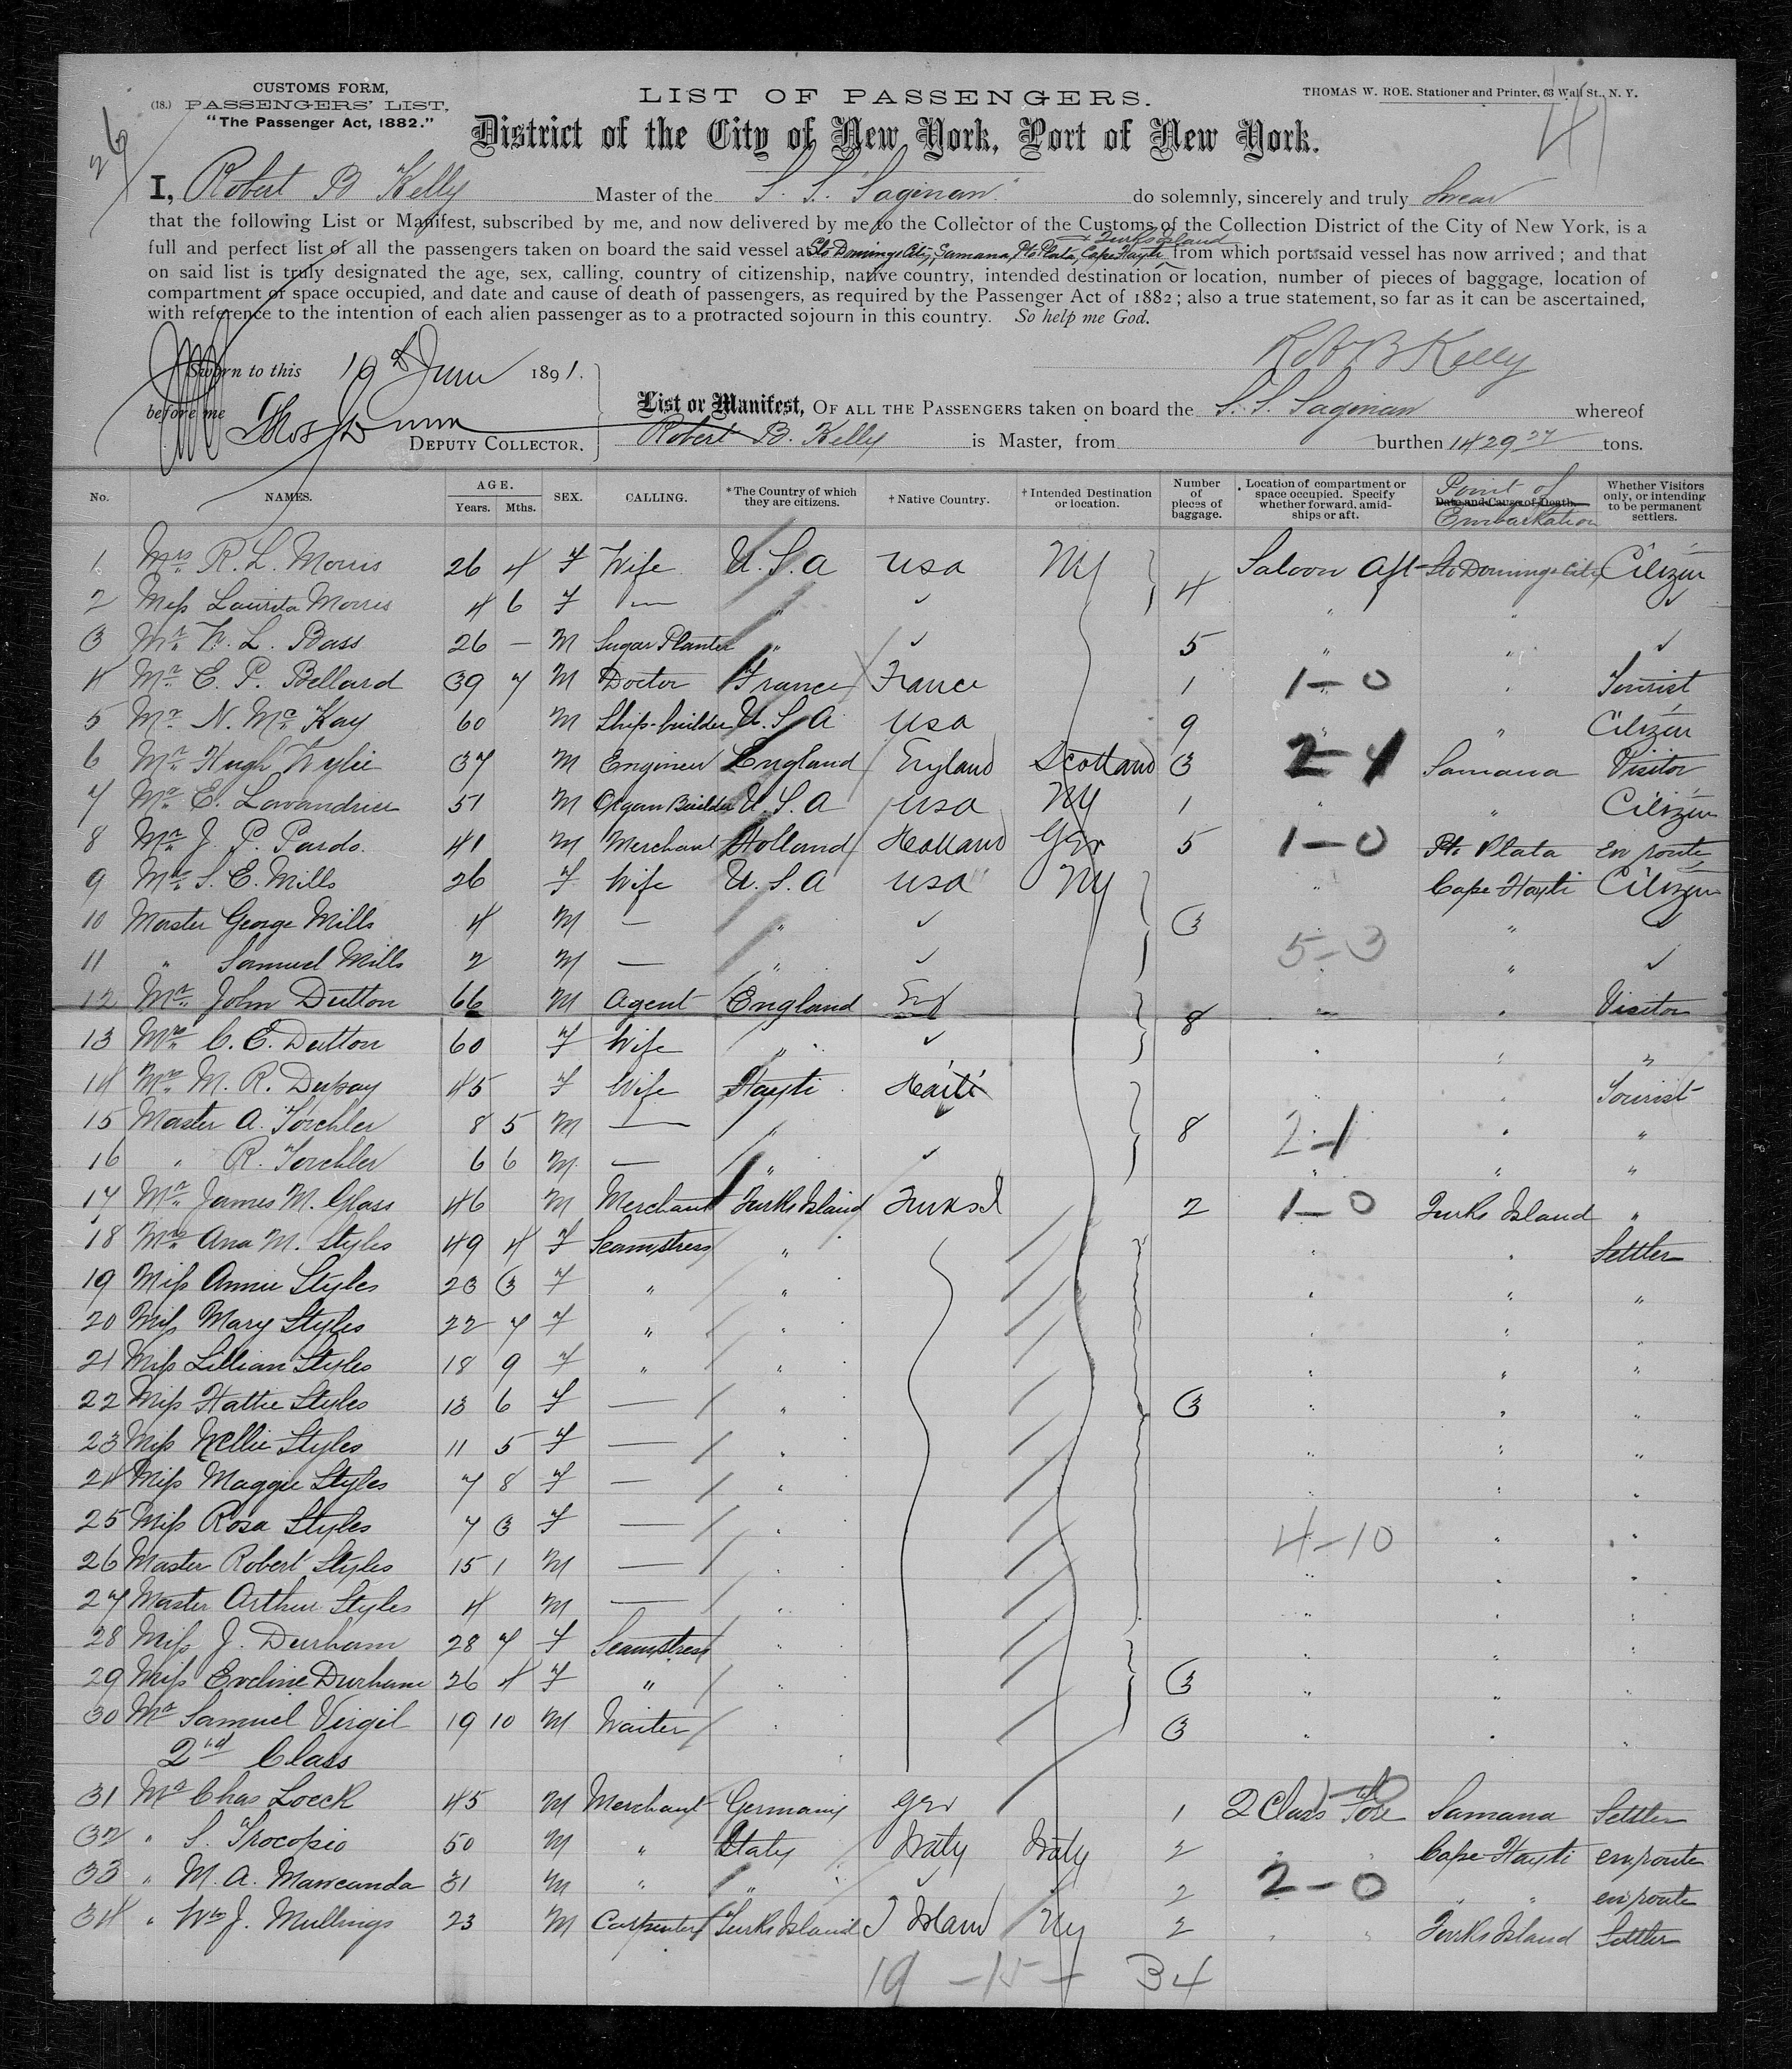 CUSTOMS FORM,
(18.) PASSENGERS' LIST,
"The Passenger Act, 1882."
26
LIST OF PASSENGERS.
THOMAS W. ROE. Stationer and Printer, 63 Wall St., N. Y.
41
District of the City of New York, Port of New York.
I, Robert B Kelly Master of the S. S. Saginaw do solemnly, sincerely and truly Swear
that the following List or Manifest, subscribed by me, and now delivered by me to the Collector of the Customs of the Collection District of the City of New York, is a
& Turks Island
full and perfect list of all the passengers taken on board the said vessel at Sto Domingo City, Samana, Pto Plata, Cape Hayti from which ports said vessel has now arrived; and that
on said list is truly designated the age, sex, calling, country of citizenship, native country, intended destination or location, number of pieces of baggage, location of
compartment or space occupied, and date and cause of death of passengers, as required by the Passenger Act of 1882; also a true statement, so far as it can be ascertained,
with reference to the intention of each alien passenger as to a protracted sojourn in this country. So help me God.
Robt B Kelly
Sworn to this 19 June 1891.
before me Thos Dunn
DEPUTY COLLECTOR.
List or Manifest, OF ALL THE PASSENGERS taken on board the S. S. Saginaw whereof
Robert B. Kelly is Master, from burthen 1429 27 tons.
No. NAMES. AGE. Years. Mths. SEX. CALLING. *The Country of which they are citizens. †Native Country. †Intended Destination or location. Number of pieces of baggage. Location of compartment or space occupied. Specify whether forward, amidships or aft. Date and Cause of Death. Point of Embarkation Whether Visitors only, or intending to be permanent settlers.
1 Mrs R. L. Morris 26 4 F Wife U.S.A USA NY 4 Saloon Aft Sto Domingo City Citizen
2 Miss Laurita Morris 4 6 F — " ✓ " " ✓
3 Mr W. L. Bass 26 — M Sugar Planter " ✓ 5 " " ✓
4 Mr E. P. Bellard 39 7 M Doctor France France 1 1-0 " Tourist
5 Mr N. McKay 60 M Ship-builder U.S.A USA 9 " " Citizen
6 Mr Hugh Wylie 37 M Engineer England England Scotland 3 2-4 Samana Visitor
7 Mr E. Lavandrier 51 M Organ Builder U.S.A USA NY 1 " " Citizen
8 Mr J. P. Pardo. 41 M Merchant Holland Holland Ger 5 1-0 Pto Plata En route
9 Mrs S. E. Mills 26 F Wife U.S.A USA NY " Cape Hayti Citizen
10 Master George Mills 4 M — " ✓ 3 " ✓
11 " Samuel Mills 2 M — " ✓ 5-3 " ✓
12 Mr John Dutton 66 M Agent England Eng 8 " " Visitor
13 Mrs C. E. Dutton 60 F Wife " ✓ " " "
14 Mrs M. R. Dupuy 45 F Wife Hayti Haiti " " Tourist
15 Master A. Torchler 8 5 M — " 8 2-1 " "
16 " R. Torchler 6 6 M — " ✓ " " "
17 Mr James M. Glass 46 M Merchant Turks Island Turks I 2 1-0 Turks Island "
18 Mrs Ana M. Styles 49 4 F Seamstress " " " Settler
19 Miss Annie Styles 23 3 F " " " " "
20 Miss Mary Styles 22 7 F " " " " "
21 Miss Lillian Styles 18 9 F " " " " "
22 Miss Hattie Styles 13 6 F — " 3 " " "
23 Miss Nellie Styles 11 5 F — " " " "
24 Miss Maggie Styles 7 8 F — " " " "
25 Miss Rosa Styles 7 3 F — " 4-10 " "
26 Master Robert Styles 15 1 M — " " " "
27 Master Arthur Styles 4 M — " " " "
28 Miss J. Durham 28 7 F Seamstress " " " "
29 Miss Eveline Durham 26 4 F " " 3 " " "
30 Mr Samuel Virgil 19 10 M Waiter " 3 " " "
2nd Class
31 Mr Chas Loeck 45 M Merchant Germany Ger 1 2 Class Fore Samana Settler
32 " S. Procopio 50 M " Italy Italy Italy 2 " " Cape Hayti enroute
33 " M. A. Mawcanda 31 M " " ✓ ✓ 2 2-0 " " enroute
34 " Wm J. Mullings 23 M Carpenter Turks Island T Island NY 2 " " Turks Island Settler
19 - 15 - 34